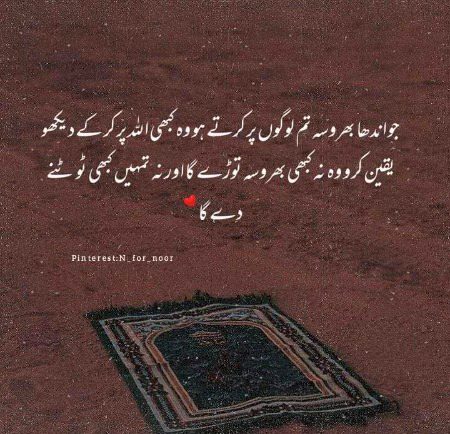 جو اندھا بھروسہ تم لوگوں پر کرتے ہو وہ کبھی اللہ پر کر کے دیکھو
یقین کرو وہ نہ کبھی بھروسہ توڑے گا اور نہ تمہیں کبھی ٹوٹنے
دے گا❤
Pinterest:N_for_noor